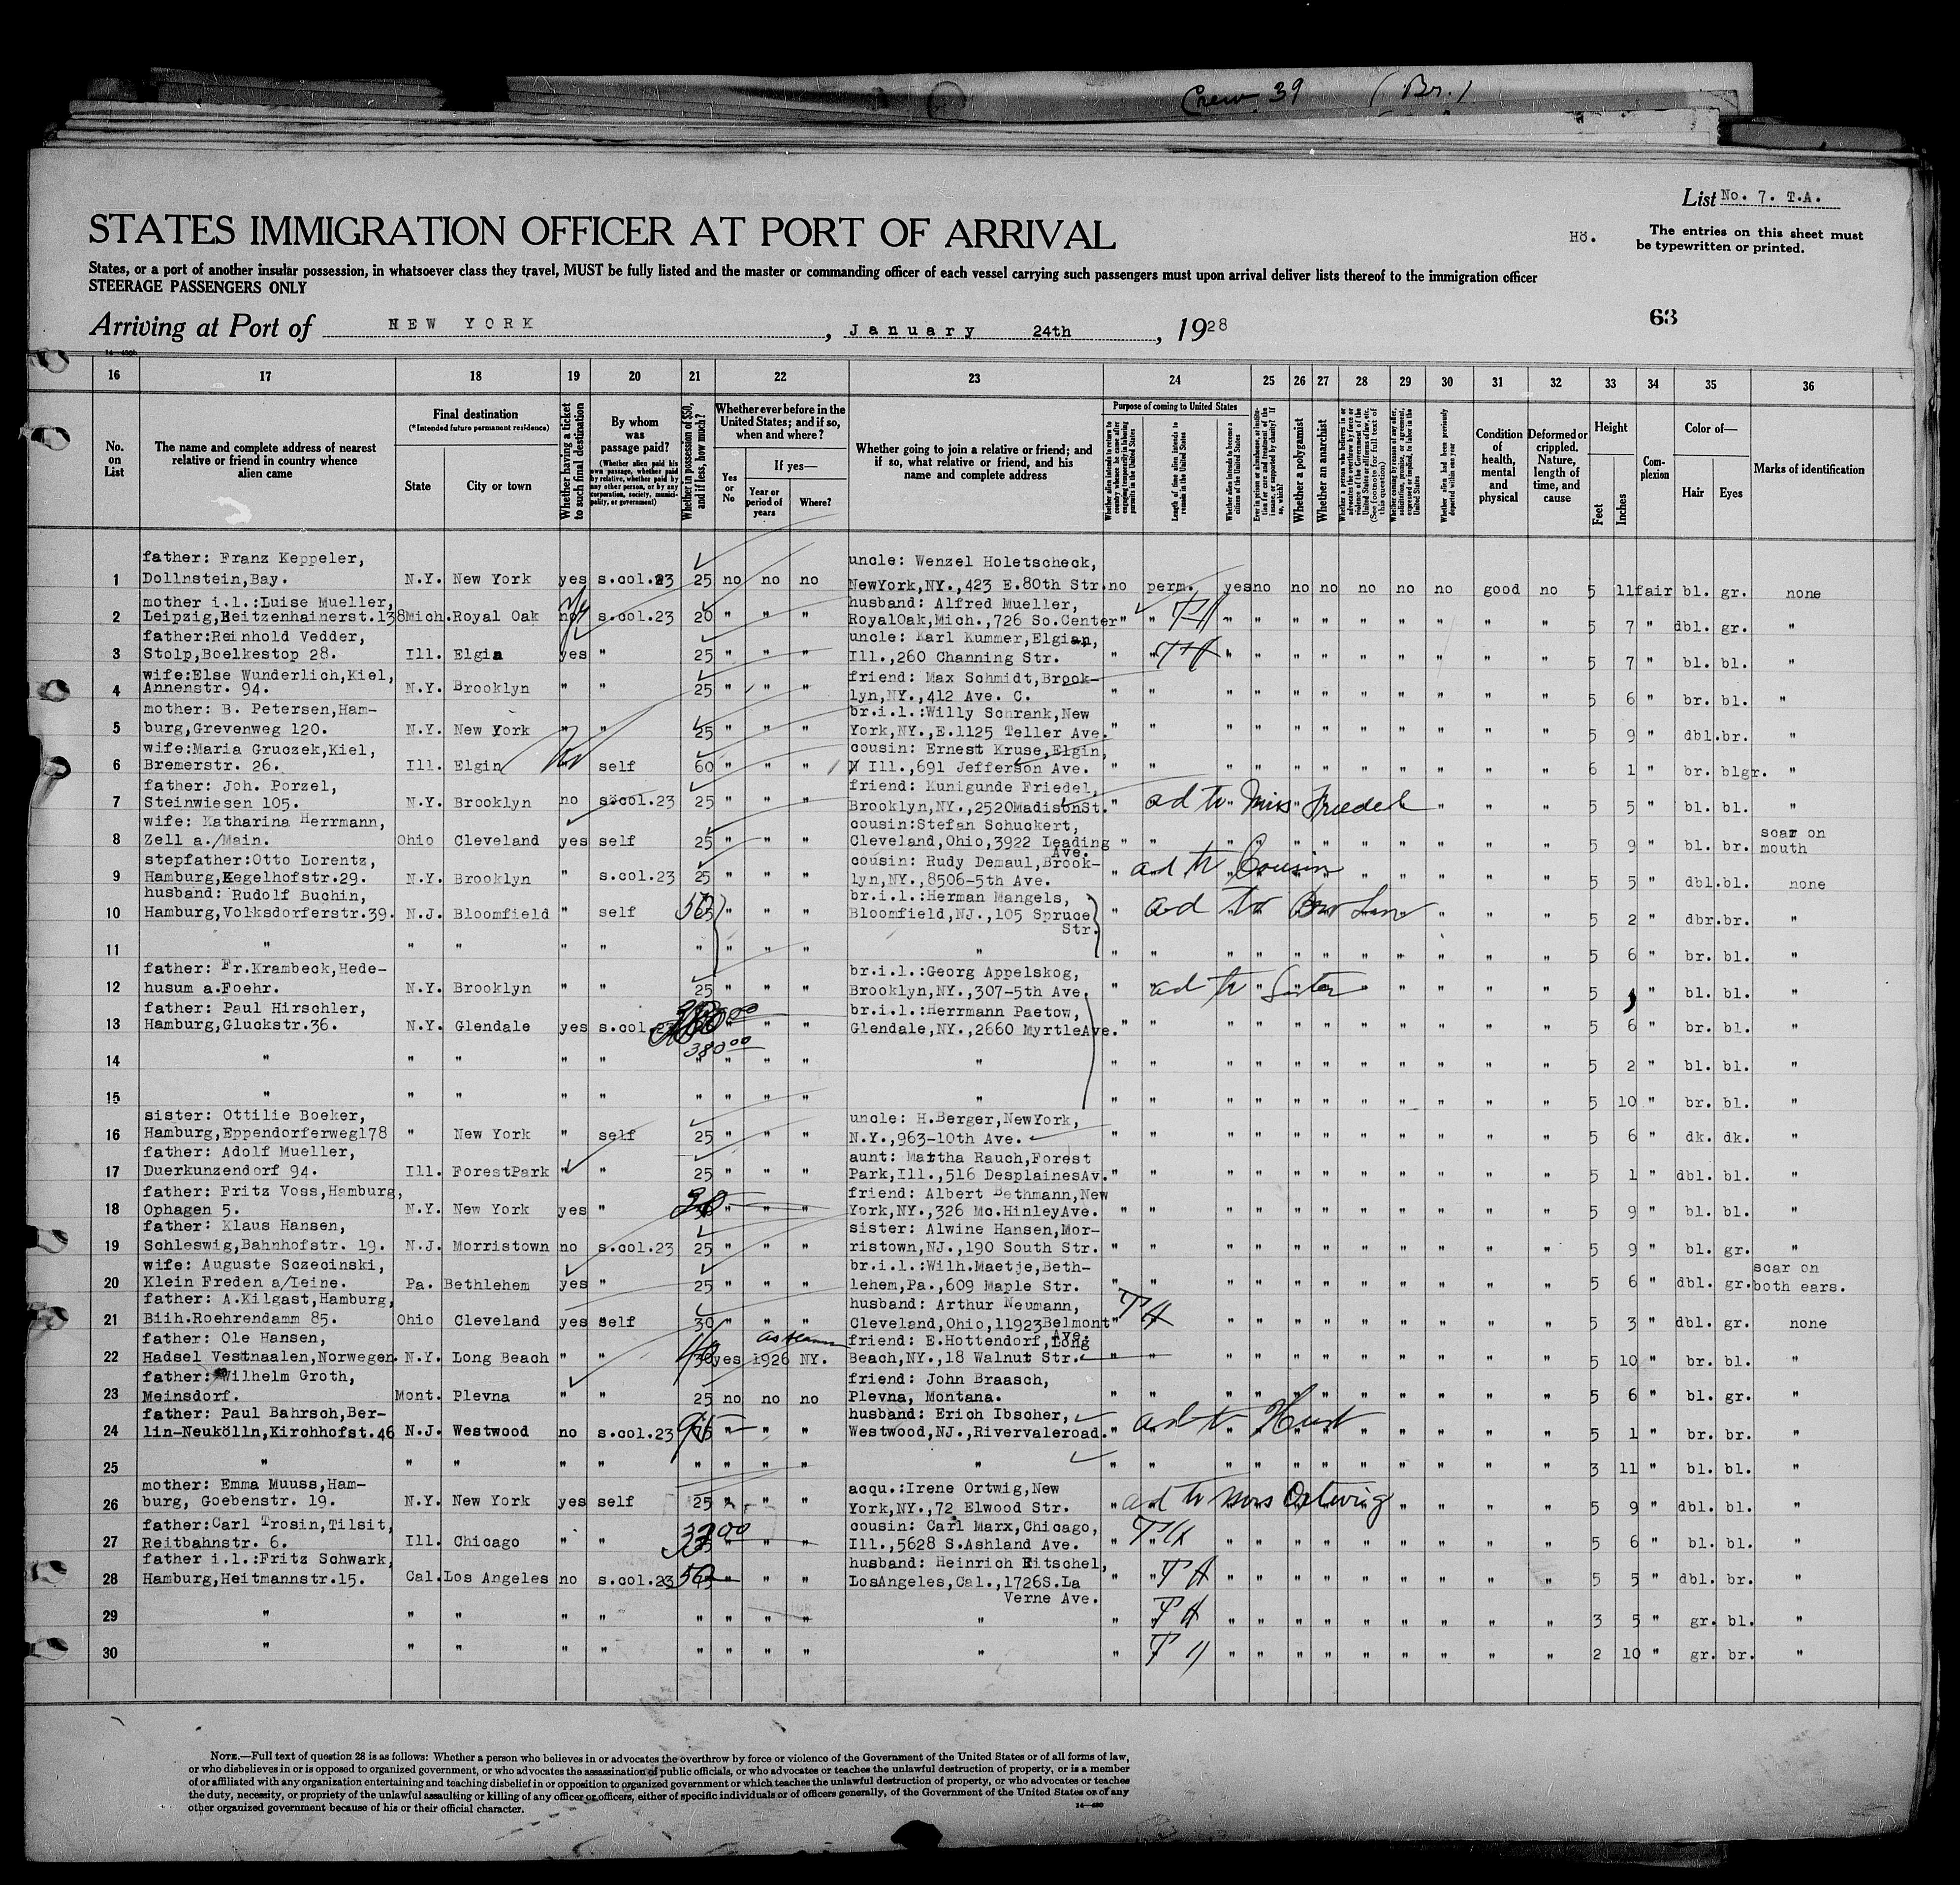 Crew 39 (Br.)
List No. 7. T.A.
STATES IMMIGRATION OFFICER AT PORT OF ARRIVAL
Hö.
The entries on this sheet must
be typewritten or printed.
States, or a port of another insular possession, in whatsoever class they travel, MUST be fully listed and the master or commanding officer of each vessel carrying such passengers must upon arrival deliver lists thereof to the immigration officer
STEERAGE PASSENGERS ONLY
Arriving at Port of NEW YORK, January 24th, 1928
63
14—430b
16 17 18 19 20 21 22 23 24 25 26 27 28 29 30 31 32 33 34 35 36
No. on List
The name and complete address of nearest relative or friend in country whence alien came
Final destination
(*Intended future permanent residence)
State
City or town
Whether having a ticket to such final destination
By whom was passage paid?
(Whether alien paid his own passage, whether paid by relative, whether paid by any other person, or by any corporation, society, municipality, or government)
Whether in possession of $50, and if less, how much?
Whether ever before in the United States; and if so, when and where?
Yes or No
If yes—
Year or period of years
Where?
Whether going to join a relative or friend; and if so, what relative or friend, and his name and complete address
Purpose of coming to United States
Whether alien intends to return to country whence he came after engaging temporarily in laboring pursuits in the United States
Length of time alien intends to remain in the United States
Whether alien intends to become a citizen of the United States
Ever in prison or almshouse, or institution for care and treatment of the insane, or supported by charity? If so, which?
Whether a polygamist
Whether an anarchist
Whether a person who believes in or advocates the overthrow by force or violence of the Government of the United States or all forms of law, etc. (See footnote for full text of this question)
Whether coming by reason of any offer, solicitation, promise, or agreement, expressed or implied, to labor in the United States
Whether alien had been previously deported within one year
Condition of health, mental and physical
Deformed or crippled. Nature, length of time, and cause
Height
Feet
Inches
Complexion
Color of—
Hair
Eyes
Marks of identification
father: Franz Keppeler, uncle: Wenzel Holetscheck,
1 Dollnstein,Bay. N.Y. New York yes s.col.23 25 no no no NewYork,NY.,423 E.80th Str. no perm. yes no no no no no no good no 5 11 fair bl. gr. none
mother i.l.:Luise Mueller, husband: Alfred Mueller,
2 Leipzig,Reitzenhainerst.138 Mich. Royal Oak no s.col.23 20 " " " RoyalOak,Mich.,726 So.Center " " TH " " " " " " " " " 5 7 " dbl. gr. "
father:Reinhold Vedder, uncle: Karl Kummer,Elgian,
3 Stolp,Boelkestop 28. Ill. Elgia yes " 25 " " " Ill.,260 Channing Str. " " TH " " " " " " " " " 5 7 " bl. bl. "
wife:Else Wunderlich,Kiel, friend: Max Schmidt,Brook-
4 Annenstr. 94. N.Y. Brooklyn " " 25 " " " lyn,NY.,412 Ave. C. " " " " " " " " " " " 5 6 " br. bl. "
mother: B. Petersen,Ham- br.i.l.:Willy Schrank,New
5 burg,Grevenweg 120. N.Y. New York " " 25 " " " York,NY.,E.1125 Teller Ave. " " " " " " " " " " " 5 9 " dbl. br. "
wife:Maria Gruczek,Kiel, cousin: Ernest Kruse,Elgin,
6 Bremerstr. 26. Ill. Elgin self 60 " " " Ill.,691 Jefferson Ave. " " " " " " " " " " " 6 1 " br. blgr. "
father: Joh. Porzel, friend: Kunigunde Friedel,
7 Steinwiesen 105. N.Y. Brooklyn no s.col.23 25 " " " Brooklyn,NY.,2520MadisonSt. " ad to Miss Friedel " " " " 5 5 " bl. bl. "
wife: Katharina Herrmann, cousin:Stefan Schuckert, scar on
8 Zell a./Main. Ohio Cleveland yes self 25 " " " Cleveland,Ohio,3922 Leading " " " " " " " " " " " 5 9 " bl. br. mouth
Ave.
stepfather:Otto Lorentz, cousin: Rudy Demaul,Brook-
9 Hamburg,Kegelhofstr.29. N.Y. Brooklyn " s.col.23 25 " " " lyn,NY.,8506-5th Ave. ad to Cousin " " " " " 5 5 " dbl. bl. none
husband: Rudolf Buchin, br.i.l.:Herman Mangels,
10 Hamburg,Volksdorferstr.39. N.J. Bloomfield " self 50 " " " Bloomfield,NJ.,105 Spruce " ad to Bro Law " " " 5 2 " dbr. br. "
Str.
11 " " " " " " " " " " " " " " " " " " " " " 5 6 " br. bl. "
father: Fr.Krambeck,Hede- br.i.l.:Georg Appelskog,
12 husum a.Foehr. N.Y. Brooklyn " " 25 " " " Brooklyn,NY.,307-5th Ave. " ad to Sister " " " " " 5 " bl. bl. "
father: Paul Hirschler, br.i.l.:Herrmann Paetow,
13 Hamburg,Gluckstr.36. N.Y. Glendale yes s.col.23 " " " Glendale,NY.,2660 MyrtleAve. " " " " " " " " " " " 5 6 " br. bl. "
380.00
14 " " " " " " " " " " " " " " " " " " " " " 5 2 " bl. bl. "
15 " " " " " " " " " " " " " " " " " " " " " 5 10 " br. bl. "
sister: Ottilie Boeker, uncle: H.Berger,NewYork,
16 Hamburg,Eppendorferweg178 " New York " self 25 " " " N.Y.,963-10th Ave. " " " " " " " " " " " 5 6 " dk. dk. "
father: Adolf Mueller, aunt: Martha Rauch,Forest
17 Duerkunzendorf 94. Ill. ForestPark " " 25 Park,Ill.,516 DesplainesAv. " " " " " " " " " " " 5 1 " dbl. bl. "
father: Fritz Voss,Hamburg, friend: Albert Bethmann,New
18 Ophagen 5. N.Y. New York yes " 30 " " " York,NY.,326 Mc.HinleyAve. " " " " " " " " " " " 5 9 " bl. bl. "
father: Klaus Hansen, sister: Alwine Hansen,Mor-
19 Schleswig,Bahnhofstr. 19. N.J. Morristown no s.col.23 25 " " " ristown,NJ.,190 South Str. " " " " " " " " " " " 5 9 " bl. gr. "
wife: Auguste Sczecinski, br.i.l.:Wilh.Maetje,Beth- scar on
20 Klein Freden a/Leine. Pa. Bethlehem yes " 25 " " " lehem,Pa.,609 Maple Str. " " " " " " " " " " " 5 6 " dbl. gr. both ears.
father: A.Kilgast,Hamburg, husband: Arthur Neumann,
21 Biih.Roehrendamm 85. Ohio Cleveland yes self 30 " " " Cleveland,Ohio,11923Belmont " TH " " " " " " " " " 5 3 " dbl. gr. none
Ave.
father: Ole Hansen, as seaman friend: E.Hottendorf,Long
22 Hadsel Vestnaalen,Norwegen. N.Y. Long Beach " " 40 yes 1926 NY. Beach,NY.,18 Walnut Str. " " " " " " " " " " " 5 10 " br. bl. "
father: Wilhelm Groth, friend: John Braasch,
23 Meinsdorf. Mont. Plevna " " 25 no no no Plevna, Montana. " " " " " " " " " " " 5 6 " bl. gr. "
father: Paul Bahrsch,Ber- husband: Erich Ibscher,
24 lin-Neukölln,Kirchhofst.46 N.J. Westwood no s.col.23 " " " Westwood,NJ.,Rivervaleroad. " ad to Husb " " " " " 5 1 " br. br. "
25 " " " " " " " " " " " " " " " " " " " " " 3 11 " bl. bl. "
mother: Emma Muuss,Ham- acqu.:Irene Ortwig,New
26 burg, Goebenstr. 19. N.Y. New York yes self 25 " " " York,NY.,72 Elwood Str. " ad to Mrs Ortwig " " " " 5 9 " dbl. bl. "
father:Carl Trosin,Tilsit, cousin: Carl Marx,Chicago,
27 Reitbahnstr. 6. Ill. Chicago " " " " " Ill.,5628 S.Ashland Ave. " " " " " " " " " " " 5 6 " bl. bl. "
father i.l.:Fritz Schwark, husband: Heinrich Ritschel,
28 Hamburg,Heitmannstr.15. Cal. Los Angeles no s.col.23 50 " " " LosAngeles,Cal.,1726S.La " " TH " " " " " " " " " 5 5 " dbl. br. "
Verne Ave.
29 " " " " " " " " " " " TH " " " " " " " " " 3 5 " gr. bl. "
30 " " " " " " " " " " " TH " " " " " " " " " 2 10 " gr. br. "
NOTE.—Full text of question 28 is as follows: Whether a person who believes in or advocates the overthrow by force or violence of the Government of the United States or of all forms of law,
or who disbelieves in or is opposed to organized government, or who advocates the assassination of public officials, or who advocates or teaches the unlawful destruction of property, or is a member
of or affiliated with any organization entertaining and teaching disbelief in or opposition to organized government or which teaches the unlawful destruction of property, or who advocates or teaches
the duty, necessity, or propriety of the unlawful assaulting or killing of any officer or officers, either of specific individuals or of officers generally, of the Government of the United States or of any
other organized government because of his or their official character.
14—430